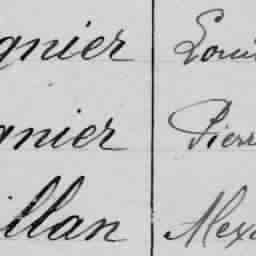 gnier Loui
gnier Pierr
illan Alex